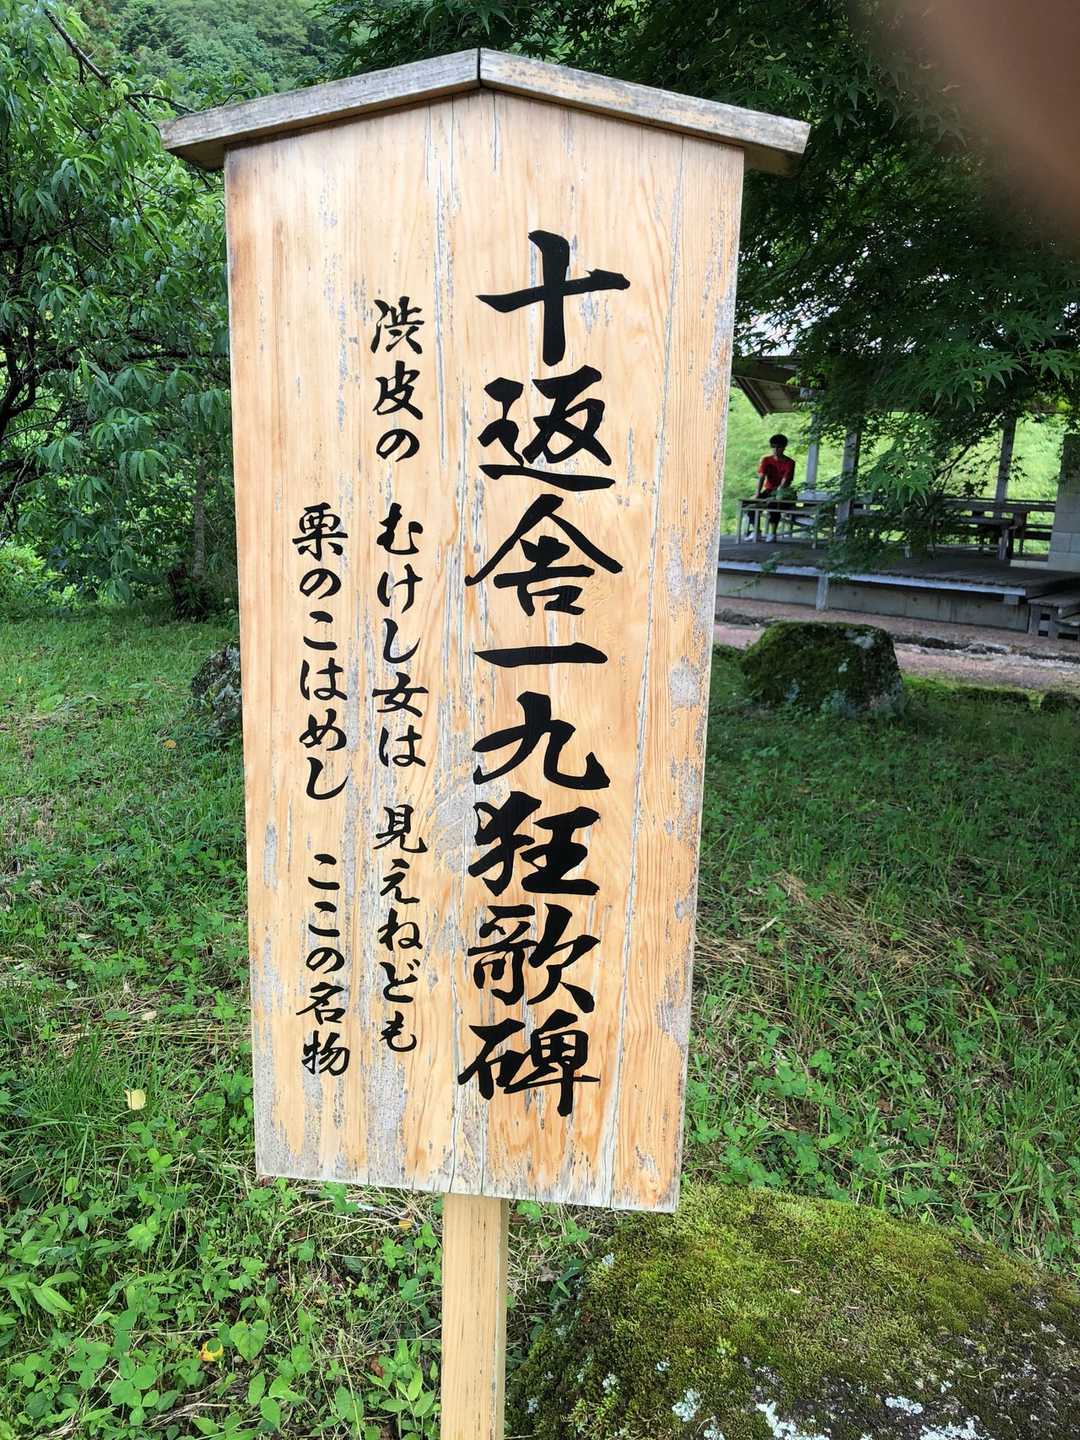 十返舎一九狂歌碑
渋皮の むけし女は 見えねども
栗のこはめし ここの名物